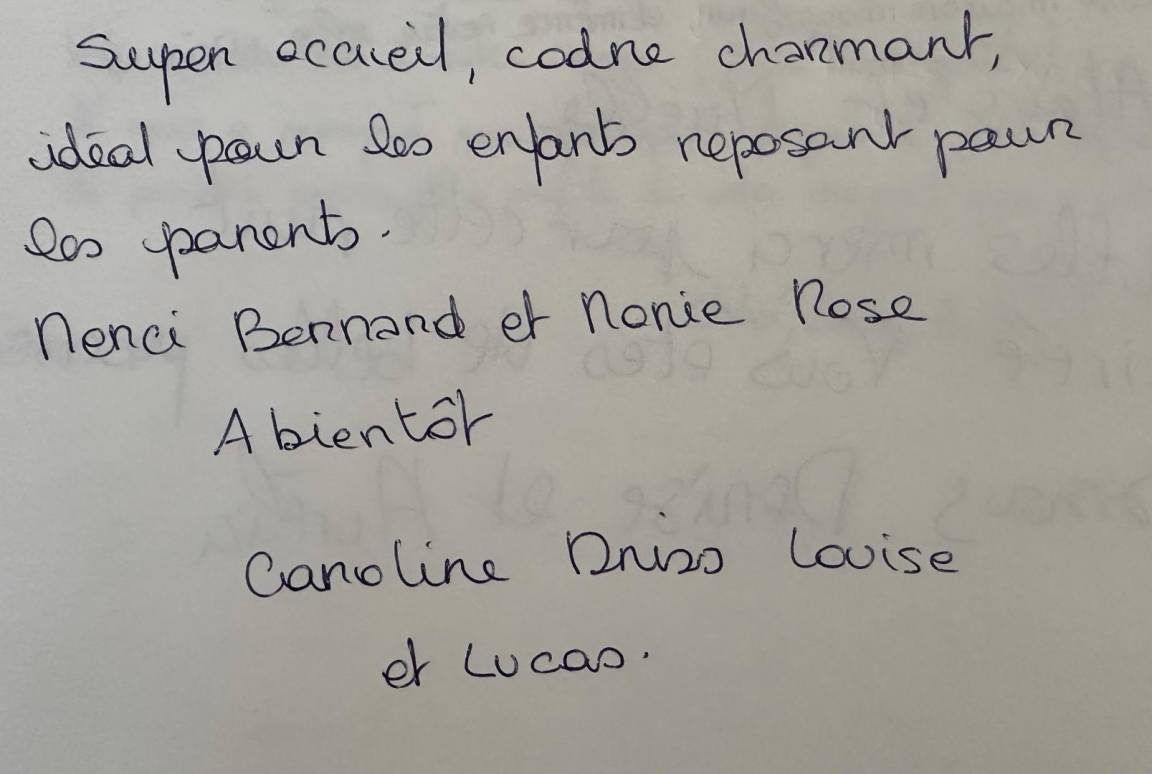 Super accueil, cadre charmant,
idéal pour les enfants reposant pour
les parents.
Merci Bernard et Marie Rose
A bientôt
Caroline Driss Louise
et Lucas.